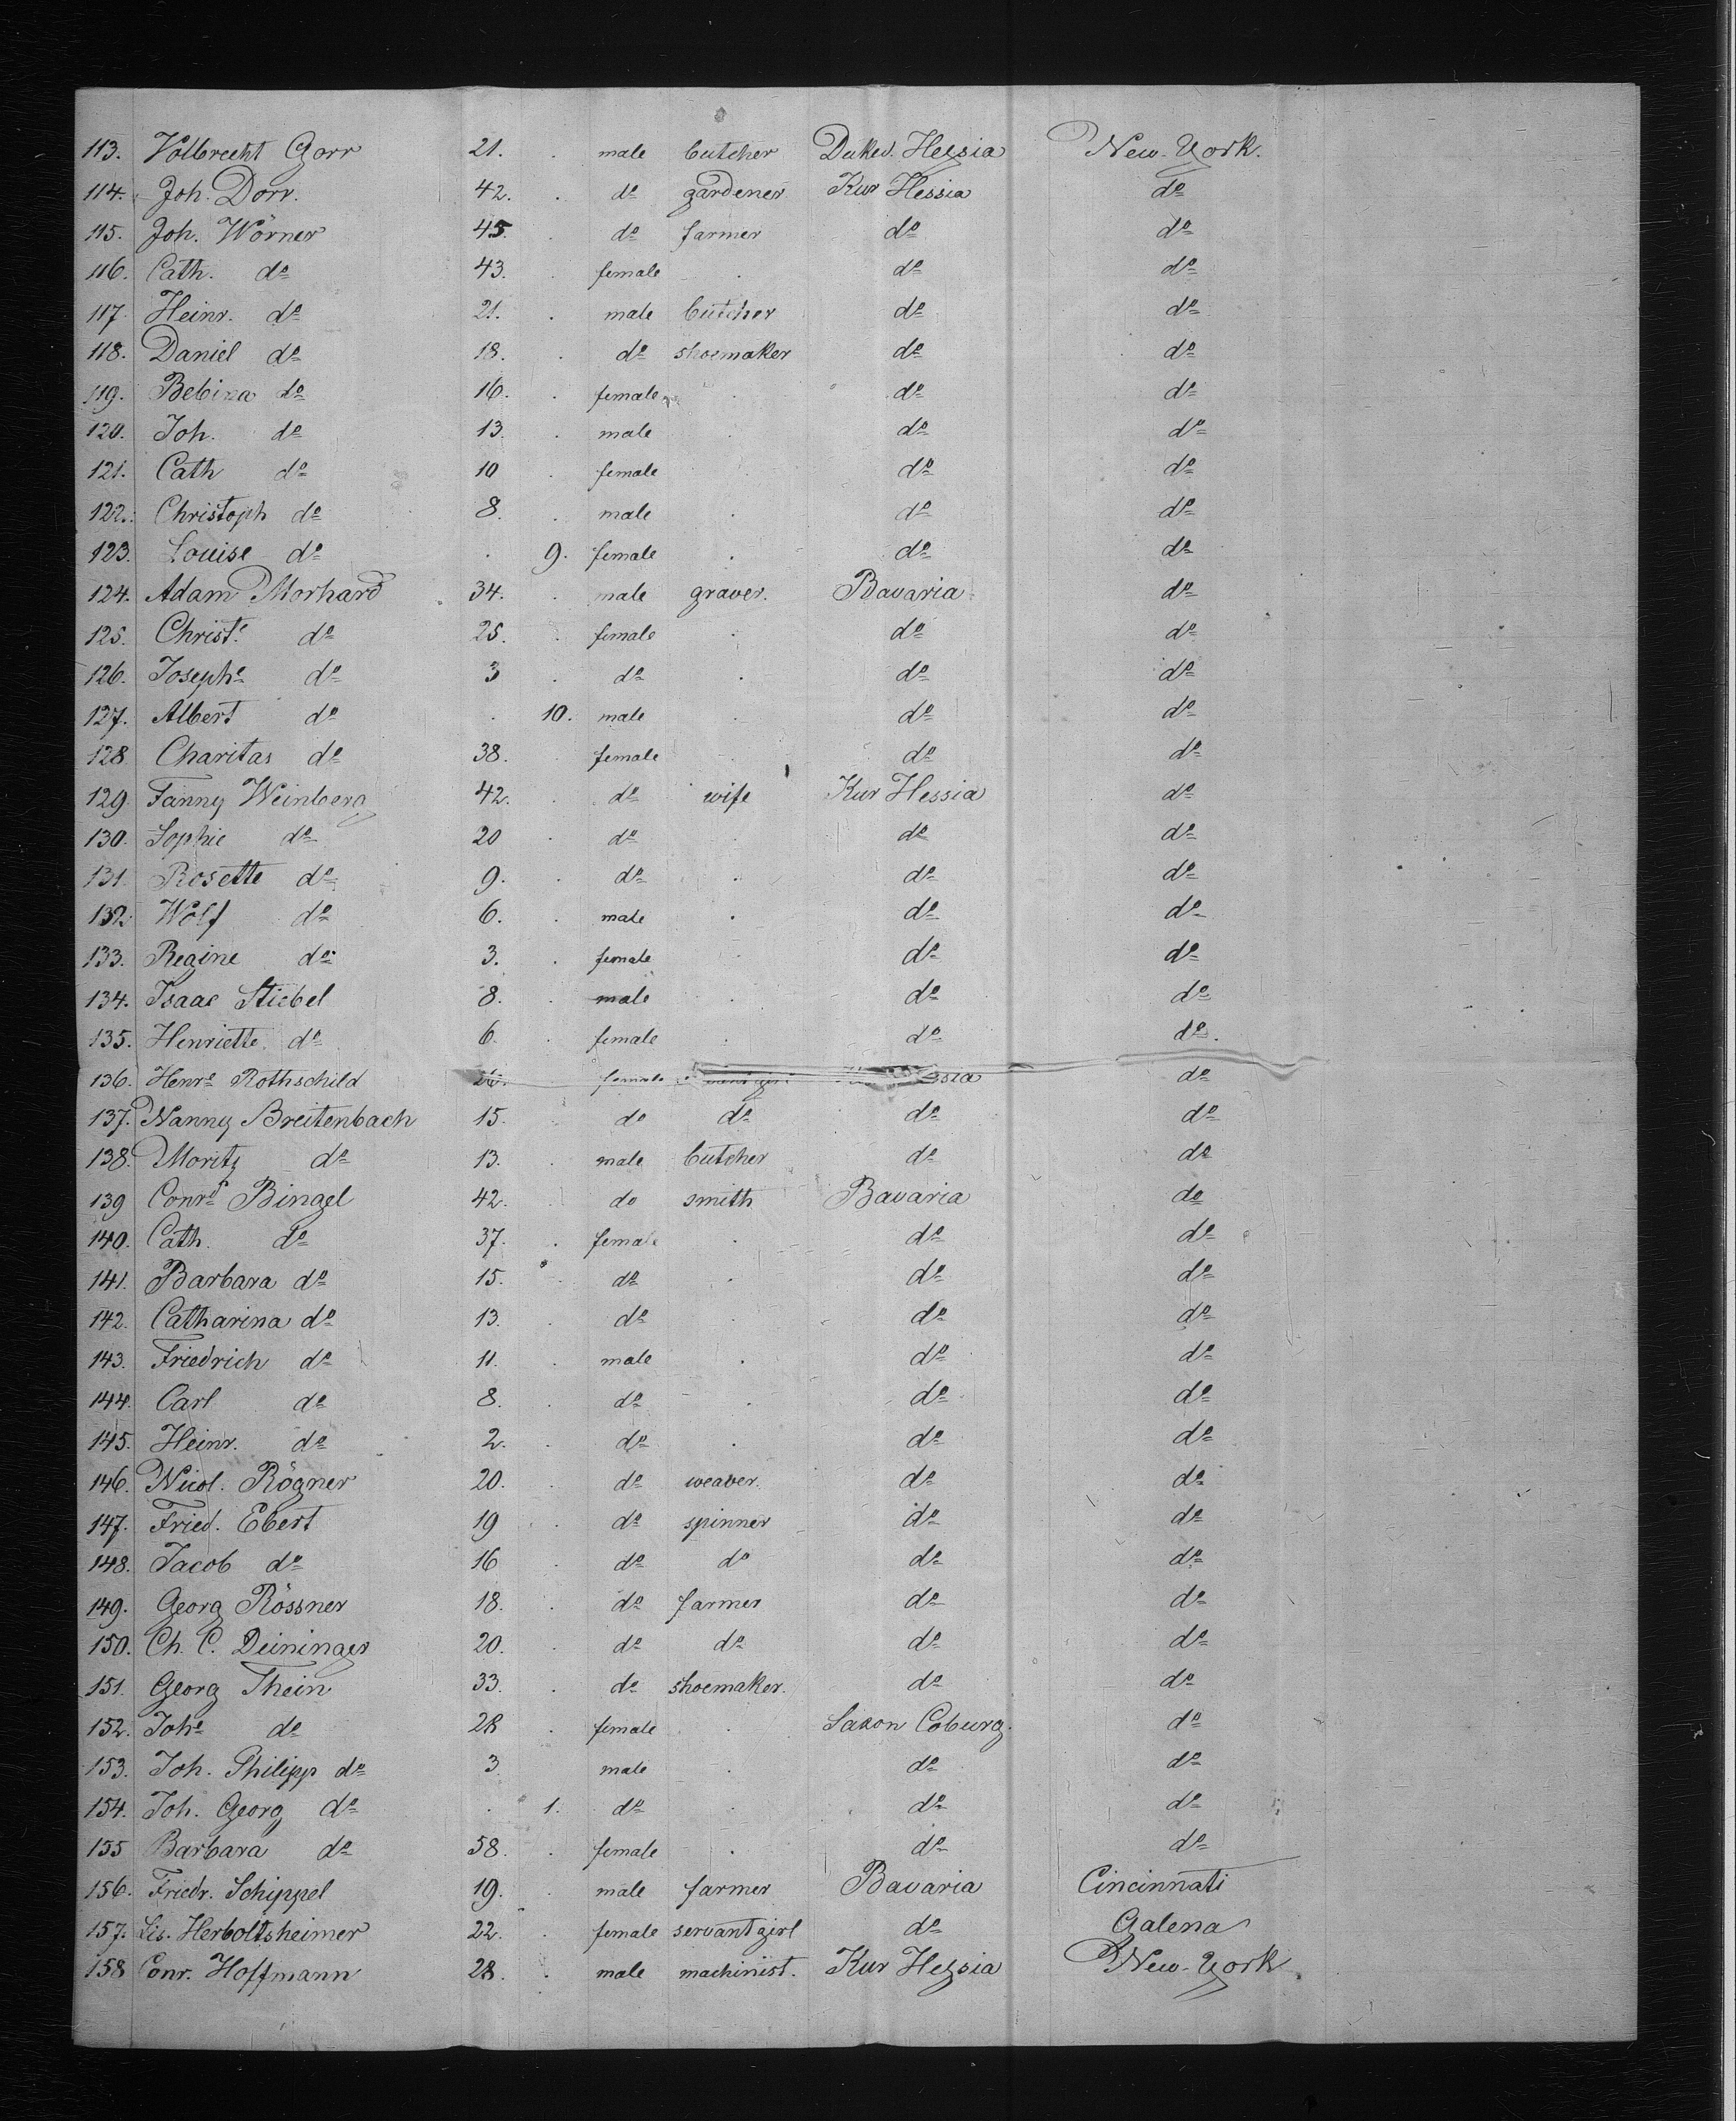 113. Volbrecht Gorr 21. male butcher Duked. Hessia New-York.
114. Joh. Dorr. 42. do gardener Kur Hessia do
115. Joh. Wörner 45. do farmer do do
116. Cath. do 43. female do do
117. Heinr. do 21. male butcher do do
118. Daniel do 18. do shoemaker do do
119. do 16. female do do
120. Joh. do 13. male do do
121. Cath do 10 female do do
122. Christoph do 8. male do do
123. Louise do 9. female do do
124. Adam Morhard 34. male graver. Bavaria do
125. Christe do 25. female do do
126. Josephe do 3 do do do
127. Albert do 10. male do do
128 Charitas do 38. female do do
129 Fanny Weinberg 42. do wife Kur Hessia do
130. Sophie do 20 do do do
131. Rosette do 9. do do do
132. Wolf do 6. male do do
133. Regine do 3. female do do
134. Isaac Stiebel 8. male do do
135. Henriette do 6. female do do.
136. Henre Rothschild female do
137. Nanny Breitenbach 15. do do do do
138. Moritz do 13. male butcher do do
139 Conrd Bingel 42. do smith Bavaria do
140. Cath. do 37. female do do
141. Barbara do 15. do do do
142. Catharina do 13. do do do
143. Friedrich do 11. male do do
144. Carl do 8. do do do
145. Heinr. do 2. do do do
146. Nicol. Rögner 20. do weaver. do do
147. Fried. Ebert 19 do spinner do do
148. Jacob do 16 do do do do
149. Georg Rössner 18. do farmer do do
150. Ch. C. Deininger 20. do do do do
151. Georg Thein 33. do shoemaker. do do
152. Johe do 28 female Saxon Coburg. do
153. Joh. Philipp do 3 male do do
154. Joh. Georg do 1. do do do
155 Barbara do 58. female do do
156. Friedr. Schippel 19. male farmer Bavaria Cincinnati
157. Lis. Herboltsheimer 22. female servantgirl do Galena
158 Conr. Hoffmann 28. male machinist. Kur Hessia New-York.